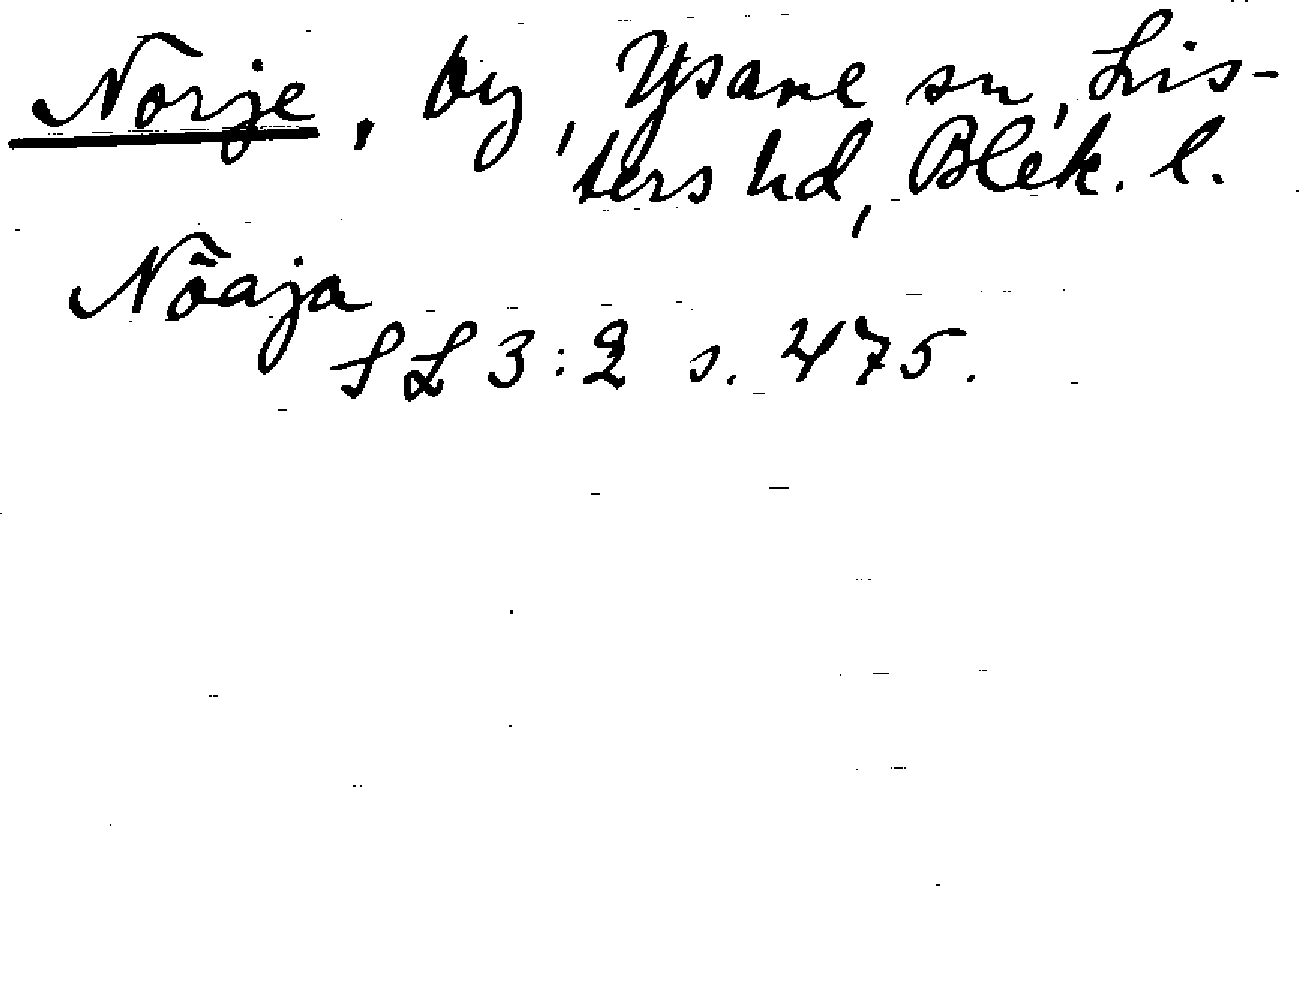 Norje, by, Ysane sn, Lis-
ters hd, Blek. l.
Nõaja
SL 3:2 s. 475.